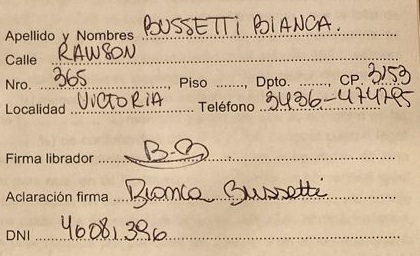 Apellido y Nombres BUSSETTI BIANCA.
Calle RAWSON
Nro. 365 Piso ......, Dpto. ......, CP. 3153
Localidad VICTORIA Teléfono 3436-474795
Firma librador B-B
Aclaración firma Bianca Bussetti
DNI 40081396